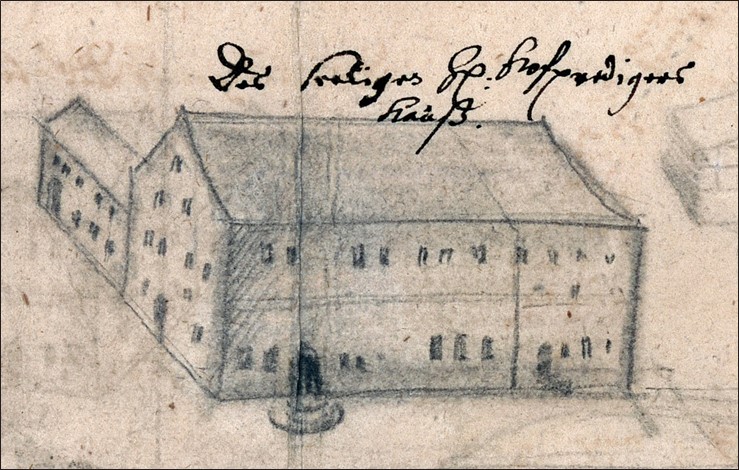 Des seeligen Hp: Hofpredigers
Hauß.